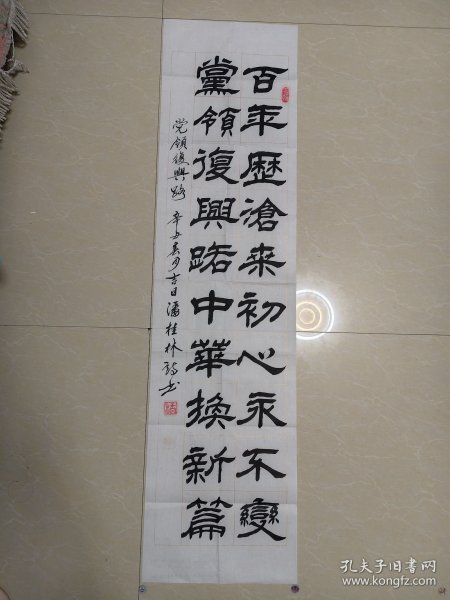 百年歷滄来初心永不變
黨領復興路中華換新篇
党領復興路 辛丑春月吉日潘桂林詩书
孔夫子旧书网
www.kongfz.com